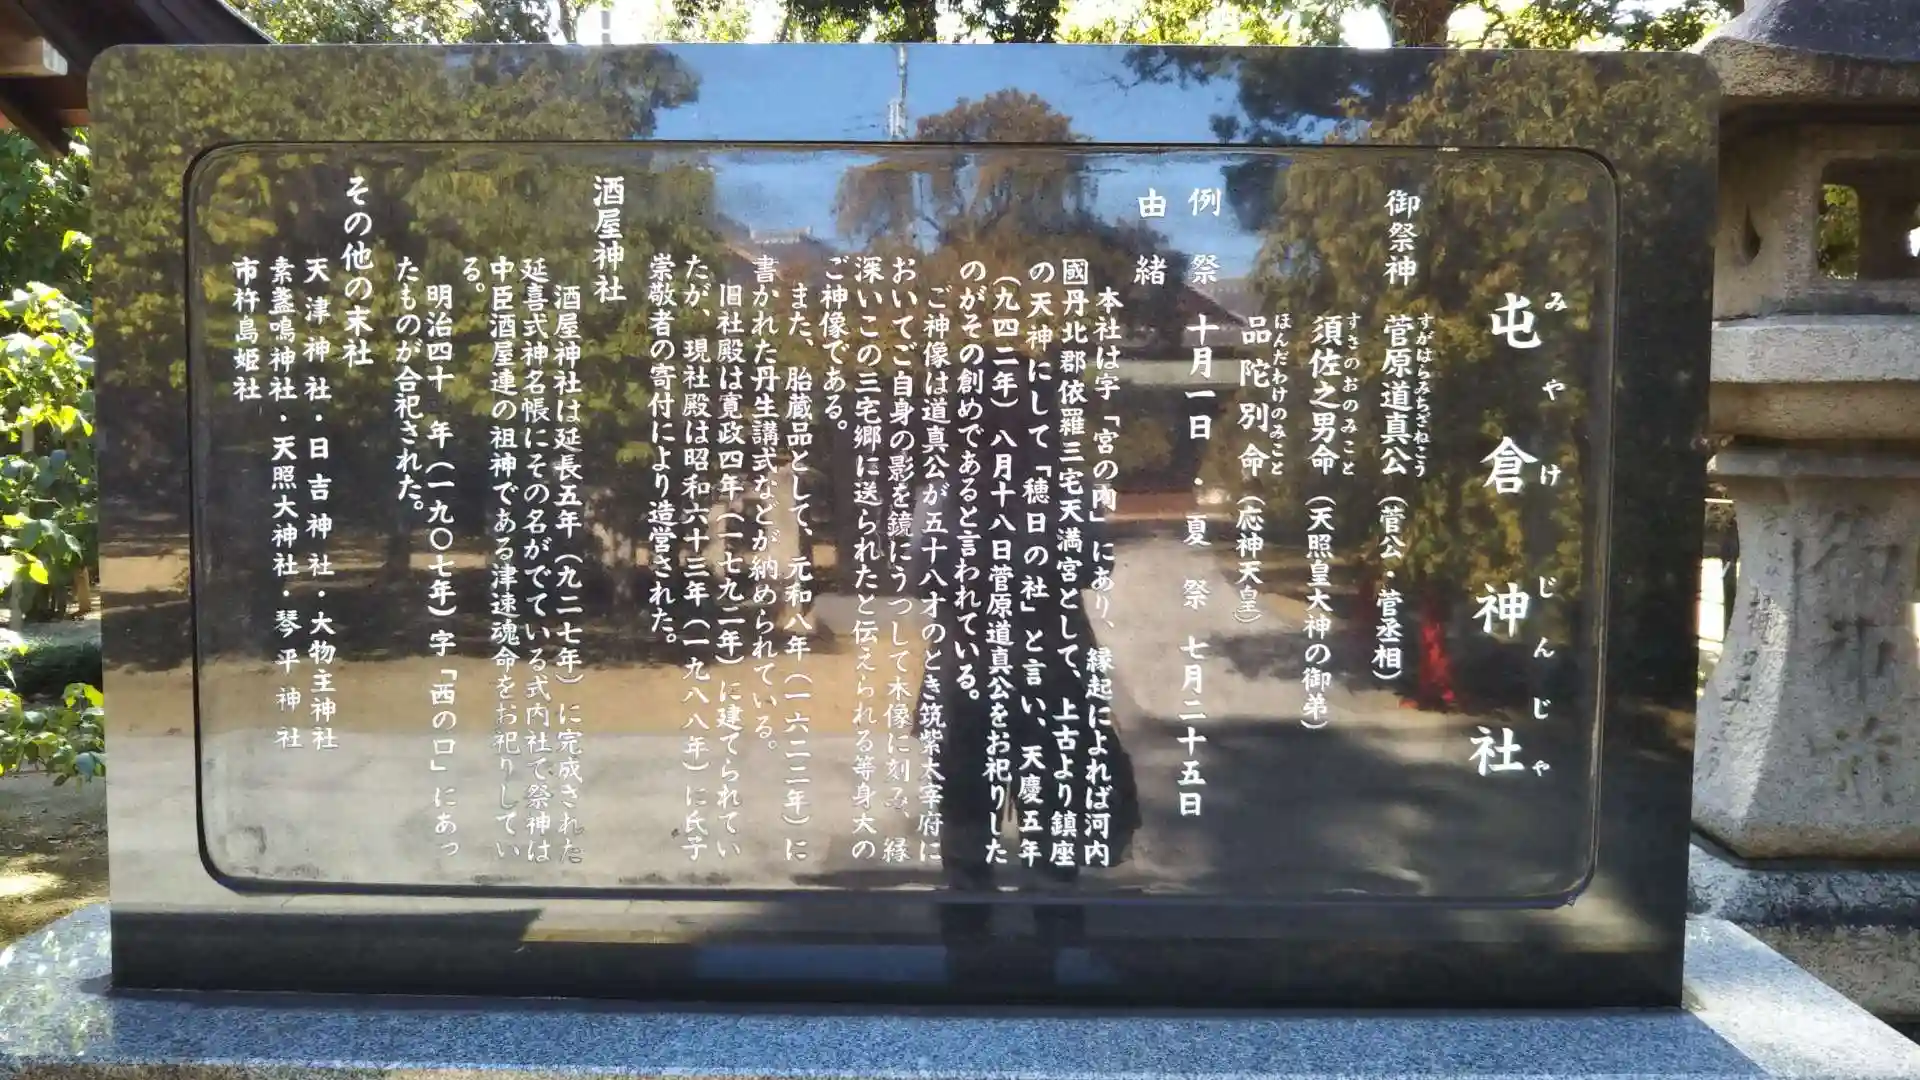 屯倉神社
みやけじんじゃ
御祭神 菅原道真公（菅公・菅丞相）
すがはらみちざねこう
須佐之男命（天照皇大神の御弟）
すさのおのみこと
品陀別命（応神天皇）
ほんだわけのみこと
例祭 十月一日・夏祭 七月二十五日
由緒
本社は字「宮の内」にあり、縁起によれば河内
國丹北郡依羅三宅天満宮として、上古より鎮座
の天神にして「穂日の社」と言い、天慶五年
（九四二年）八月十八日菅原道真公をお祀りした
のがその創めであると言われている。
ご神像は道真公が五十八才のとき筑紫太宰府に
おいてご自身の影を鏡にうつして木像に刻み、縁
深いこの三宅郷に送られたと伝えられる等身大の
ご神像である。
また、胎蔵品として、元和八年（一六二二年）に
書かれた丹生講式などが納められている。
旧社殿は寛政四年（一七九二年）に建てられてい
たが、現社殿は昭和六十三年（一九八八年）に氏子
崇敬者の寄付により造営された。
酒屋神社
酒屋神社は延長五年（九二七年）に完成された
延喜式神名帳にその名がでている式内社で祭神は
中臣酒屋連の祖神である津速魂命をお祀りしてい
る。
明治四十年（一九〇七年）字「西の口」にあっ
たものが合祀された。
その他の末社
天津神社・日吉神社・大物主神社
素盞鳴神社・天照大神社・琴平神社
市杵島姫社